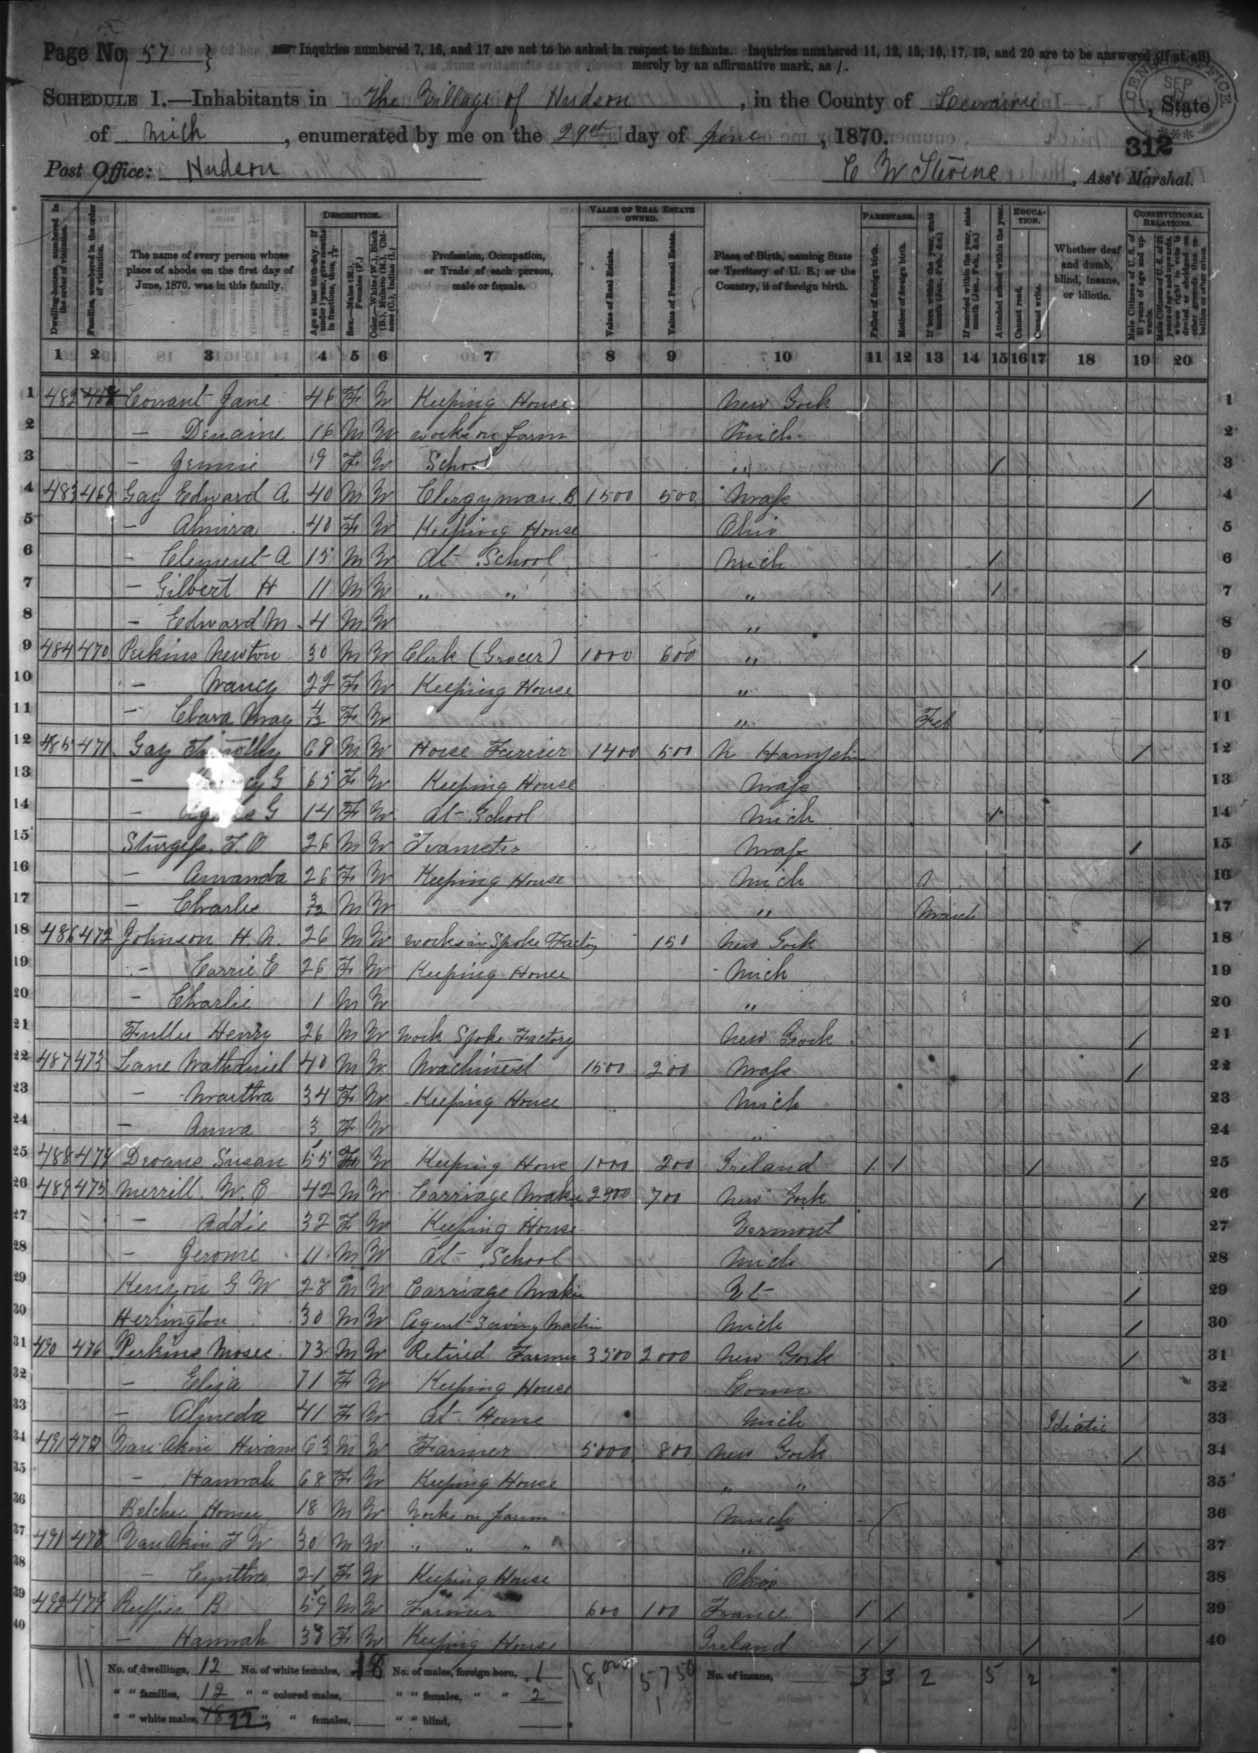 Page No. 57 } ☞ Inquiries numbered 7, 16, and 17 are not to be asked in respect to infants. Inquiries numbered 11, 12, 15, 16, 17, 19, and 20 are to be answered (if at all)
merely by an affirmative mark, as /.
SCHEDULE 1.—Inhabitants in The Village of Hudson, in the County of Lenawee, State
of Mich, enumerated by me on the 29th day of June, 1870.
312
Post Office: Hudson C W Stevens, Ass't Marshal.
DESCRIPTION. VALUE OF REAL ESTATE OWNED. PARENTAGE. EDUCATION. CONSTITUTIONAL RELATIONS.
Dwelling-houses, numbered in the order of visitation.
Families, numbered in the order of visitation.
The name of every person whose place of abode on the first day of June, 1870, was in this family.
Profession, Occupation, or Trade of each person, male or female.
Value of Real Estate.
Value of Personal Estate.
Place of Birth, naming State or Territory of U. S.; or the Country, if of foreign birth.
Father of foreign birth.
Mother of foreign birth.
Attended school within the year.
Cannot read.
Cannot write.
Whether deaf and dumb, blind, insane, or idiotic.
1 2 3 4 5 6 7 8 9 10 11 12 13 14 15 16 17 18 19 20
1 482 Conant Jane 46 F W Keeping House New York 1
2 — 16 M W works on farm Mich. 2
3 — Jennie 9 F W School " / 3
4 483 469 Gay Edward A 40 M W Clergyman B 1500 500 Mass / 4
5 — Almira 40 F W Keeping House Ohio 5
6 — Clement A 15 M W At School Mich / 6
7 — Gilbert H 11 M W " " " / 7
8 — Edward M 4 M W " 8
9 484 470 Perkins Newton 30 M W Clerk (Grocer) 1000 600 " / 9
10 — Nancy 22 F W Keeping House " 10
11 — Clara May 4/12 F W " Feb 11
12 485 471 Gay Timothy 68 M W House Furrier 1400 500 N Hampshire / 12
13 — G 65 F W Keeping House Mass 13
14 — G 14 F W At School Mich / 14
15 Sturgess F O 26 M W Teamster Mass / 15
16 — Amanda 26 F W Keeping House Mich 16
17 — Charlie 3/12 M W " March 17
18 486 472 Johnson H N. 26 M W works in Spoke Factory 150 New York / 18
19 — Carrie E 26 F W Keeping House Mich 19
20 — Charlie 1 M W " 20
21 Fuller Henry 26 M W Work Spoke Factory New York / 21
22 487 473 Lane Nathaniel 40 M W Machinest 1500 200 Mass / 22
23 — Martha 34 F W Keeping House Mich 23
24 — Anna 3 F W " 24
25 488 474 Susan 55 F W Keeping House 1000 200 Ireland / / / 25
26 489 475 Merrill W. C 42 M W Carriage Maker 2900 700 New York / 26
27 — Addie 32 F W Keeping House Vermont 27
28 — Jerome 11 M W At School Mich / 28
29 Kenyon G W 28 M W Carriage Maker Vt / 29
30 Herrington 30 M W Agent Sewing Machin Mich / 30
31 490 476 Perkins Moses 73 M W Retired Farmer 3500 2000 New York / 31
32 — Eliza 71 F W Keeping House Conn 32
33 — Almeda 41 F W At Home Mich Idiotic 33
34 491 477 Van Akin Hiram 63 M W Farmer 5000 800 New York / 34
35 — Hannah 68 F W Keeping House " " 35
36 Belcher Homer 18 M W Works on farm Mich 36
37 491 478 Van Akin F W 30 M W " " " " / 37
38 — Cynthia 21 F W Keeping House Ohio 38
39 492 479 B 59 M W Farmer 600 100 France / / / 39
40 — Hannah 38 F W Keeping House Ireland / / / 40
11 No. of dwellings, 12 No. of white females, 18 No. of males, foreign born, 1 18,000 5750 No. of insane, 3 3 2 5 2
" " families, 12 " " colored males, " " females, " " 2
" " white males, 22 " " females, " " blind,